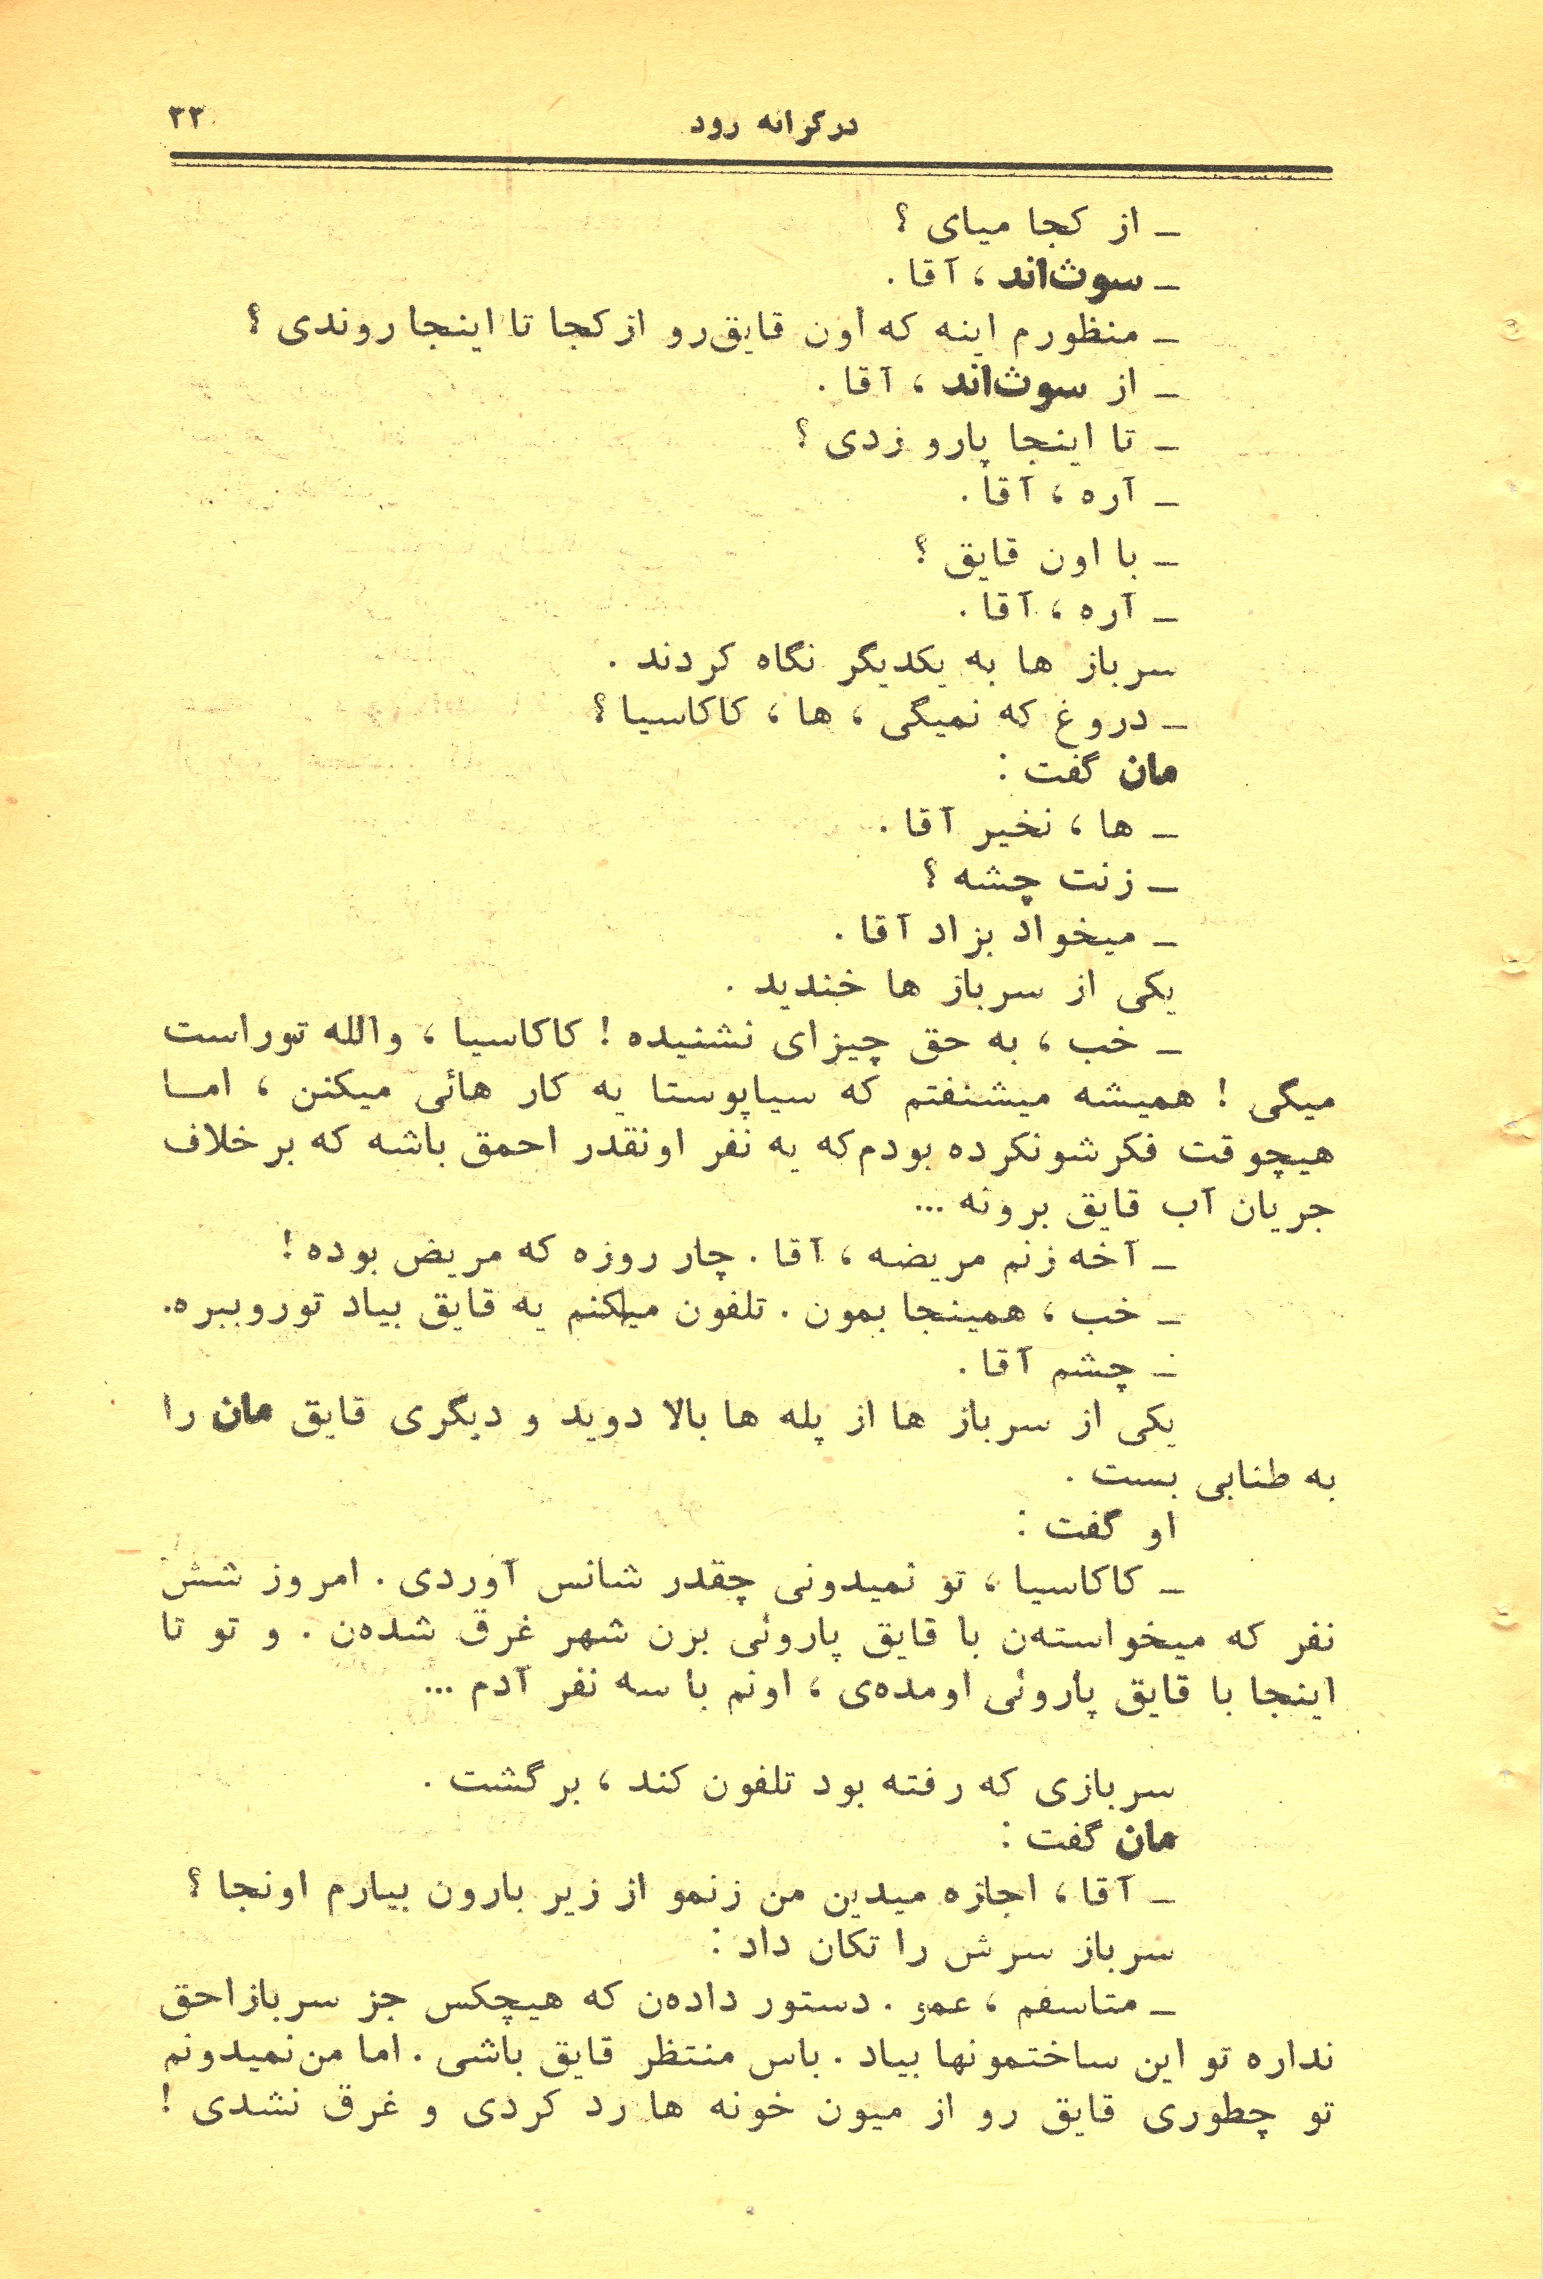 درکرانه رود
۳۳
ـ از کجا میای ؟
ـ سوث‌اند ، آقا .
ـ منظورم اینه که اون قایق‌رو از کجا تا اینجا روندی ؟
ـ از سوث‌اند ، آقا .
ـ تا اینجا پارو زدی ؟
ـ آره ، آقا .
ـ با اون قایق ؟
ـ آره ، آقا .
سرباز ها به یکدیگر نگاه کردند .
ـ دروغ که نمیگی ، ها ، کاکاسیا ؟
مان گفت :
ـ ها ، نخیر آقا .
ـ زنت چشه ؟
ـ میخواد بزاد آقا .
یکی از سرباز ها خندید .
ـ خب ، به حق چیزای نشنیده ! کاکاسیا ، والله توراست
میگی ! همیشه میشنفتم که سیاپوستا یه کار هائی میکنن ، اما
هیچوقت فکرشونکرده بودم‌که یه نفر اونقدر احمق باشه که برخلاف
جریان آب قایق برونه ...
ـ آخه زنم مریضه ، آقا . چار روزه که مریض بوده !
ـ خب ، همینجا بمون . تلفون میکنم یه قایق بیاد توروببره.
ـ چشم آقا .
یکی از سرباز ها از پله ها بالا دوید و دیگری قایق مان را
به طنابی بست .
او گفت :
ـ کاکاسیا ، تو نمیدونی چقدر شانس آوردی . امروز شش
نفر که میخواسته‌ن با قایق پاروئی بزن شهر غرق شده‌ن . و تو تا
اینجا با قایق پاروئی اومده‌ی ، اونم با سه نفر آدم ...
سربازی که رفته بود تلفون کند ، برگشت .
مان گفت :
ـ آقا ، اجازه میدین من زنمو از زیر بارون بیارم اونجا ؟
سرباز سرش را تکان داد :
ـ متاسفم ، عمو . دستور داده‌ن که هیچکس جز سربازاحق
نداره تو این ساختمونها بیاد . باس منتظر قایق باشی . اما من‌نمیدونم
تو چطوری قایق رو از میون خونه ها رد کردی و غرق نشدی !